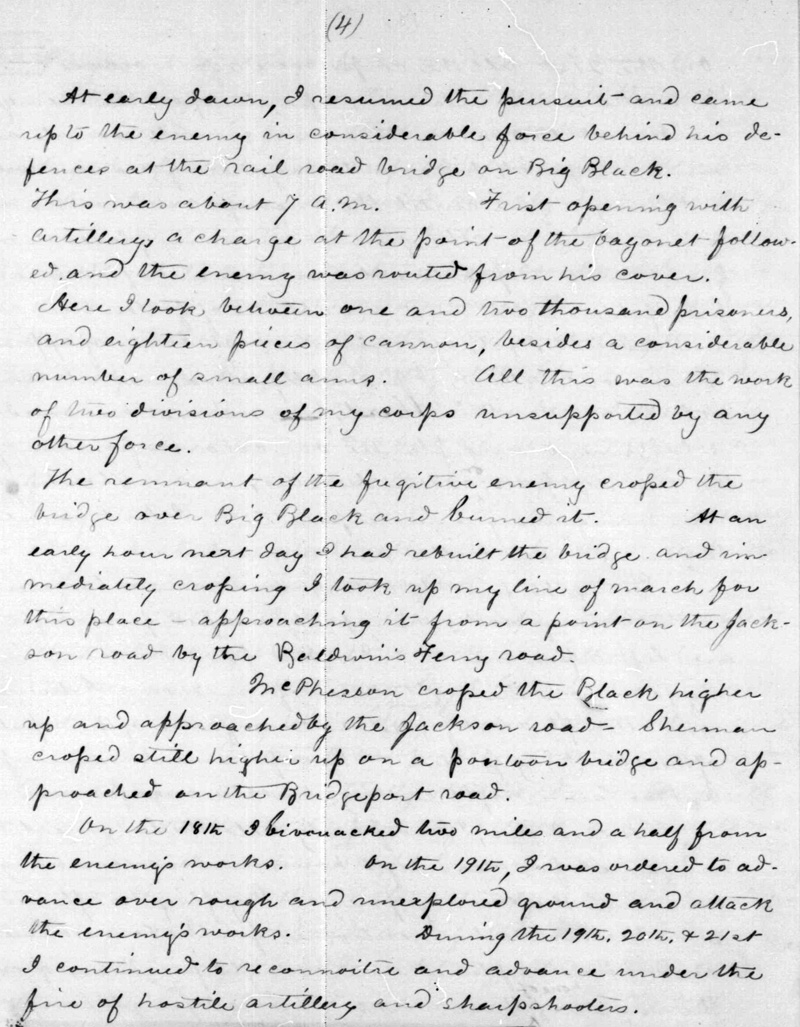 (4)
At early dawn, I resumed the pursuit and came
up to the enemy in considerable force behind his de-
fences at the rail road bridge on Big Black.
This was about 7 A.M. First opening with
artillery, a charge at the point of the bayonet follow-
ed. and the enemy was routed from his cover.
Here I took between one and two thousand prisoners,
and eighteen pieces of cannon, besides a considerable
number of small arms. All this was the work
of two divisions of my corps unsupported by any
other force.
The remnant of the fugitive enemy crossed the
bridge over Big Black and burned it. At an
early hour next day I had rebuilt the bridge and im-
mediately crossing I took up my line of march for
this place – approaching it from a point on the Jack-
son road by the Baldwin's Ferry road.
McPherson crossed the Black higher
up and approached by the Jackson road – Sherman
crossed still higher up on a pontoon bridge and ap-
proached on the Bridgeport road.
On the 18th I bivouacked two miles and a half from
the enemy's works. On the 19th, I was ordered to ad-
vance over rough and unexplored ground and attack
the enemy's works. During the 19th, 20th, & 21st
I continued to reconnoitre and advance under the
fire of hostile artillery and sharpshooters.